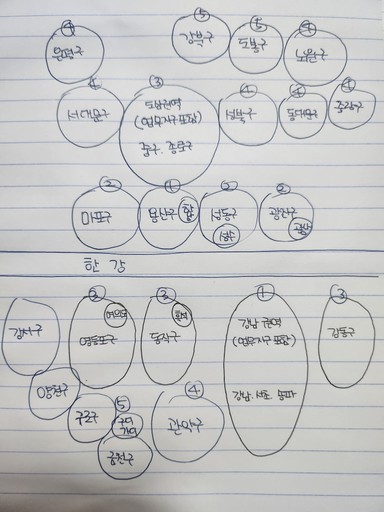 ④
은평구
⑤
강북구
⑤
도봉구
④
노원구
④
서대문구
③
도심권역
(업무지구 포함)
중구. 종로구
④
성북구
④
동대문구
④
중랑구
②
마포구
①
용산구
②
성동구
성수
②
광진구
광남
한강
강서구
②
여의도
영등포구
③
흑석
동작구
①
강남 권역
(업무지구 포함)
강남. 서초. 송파
③
강동구
양천구
구로구
⑤
금천구
④
관악구